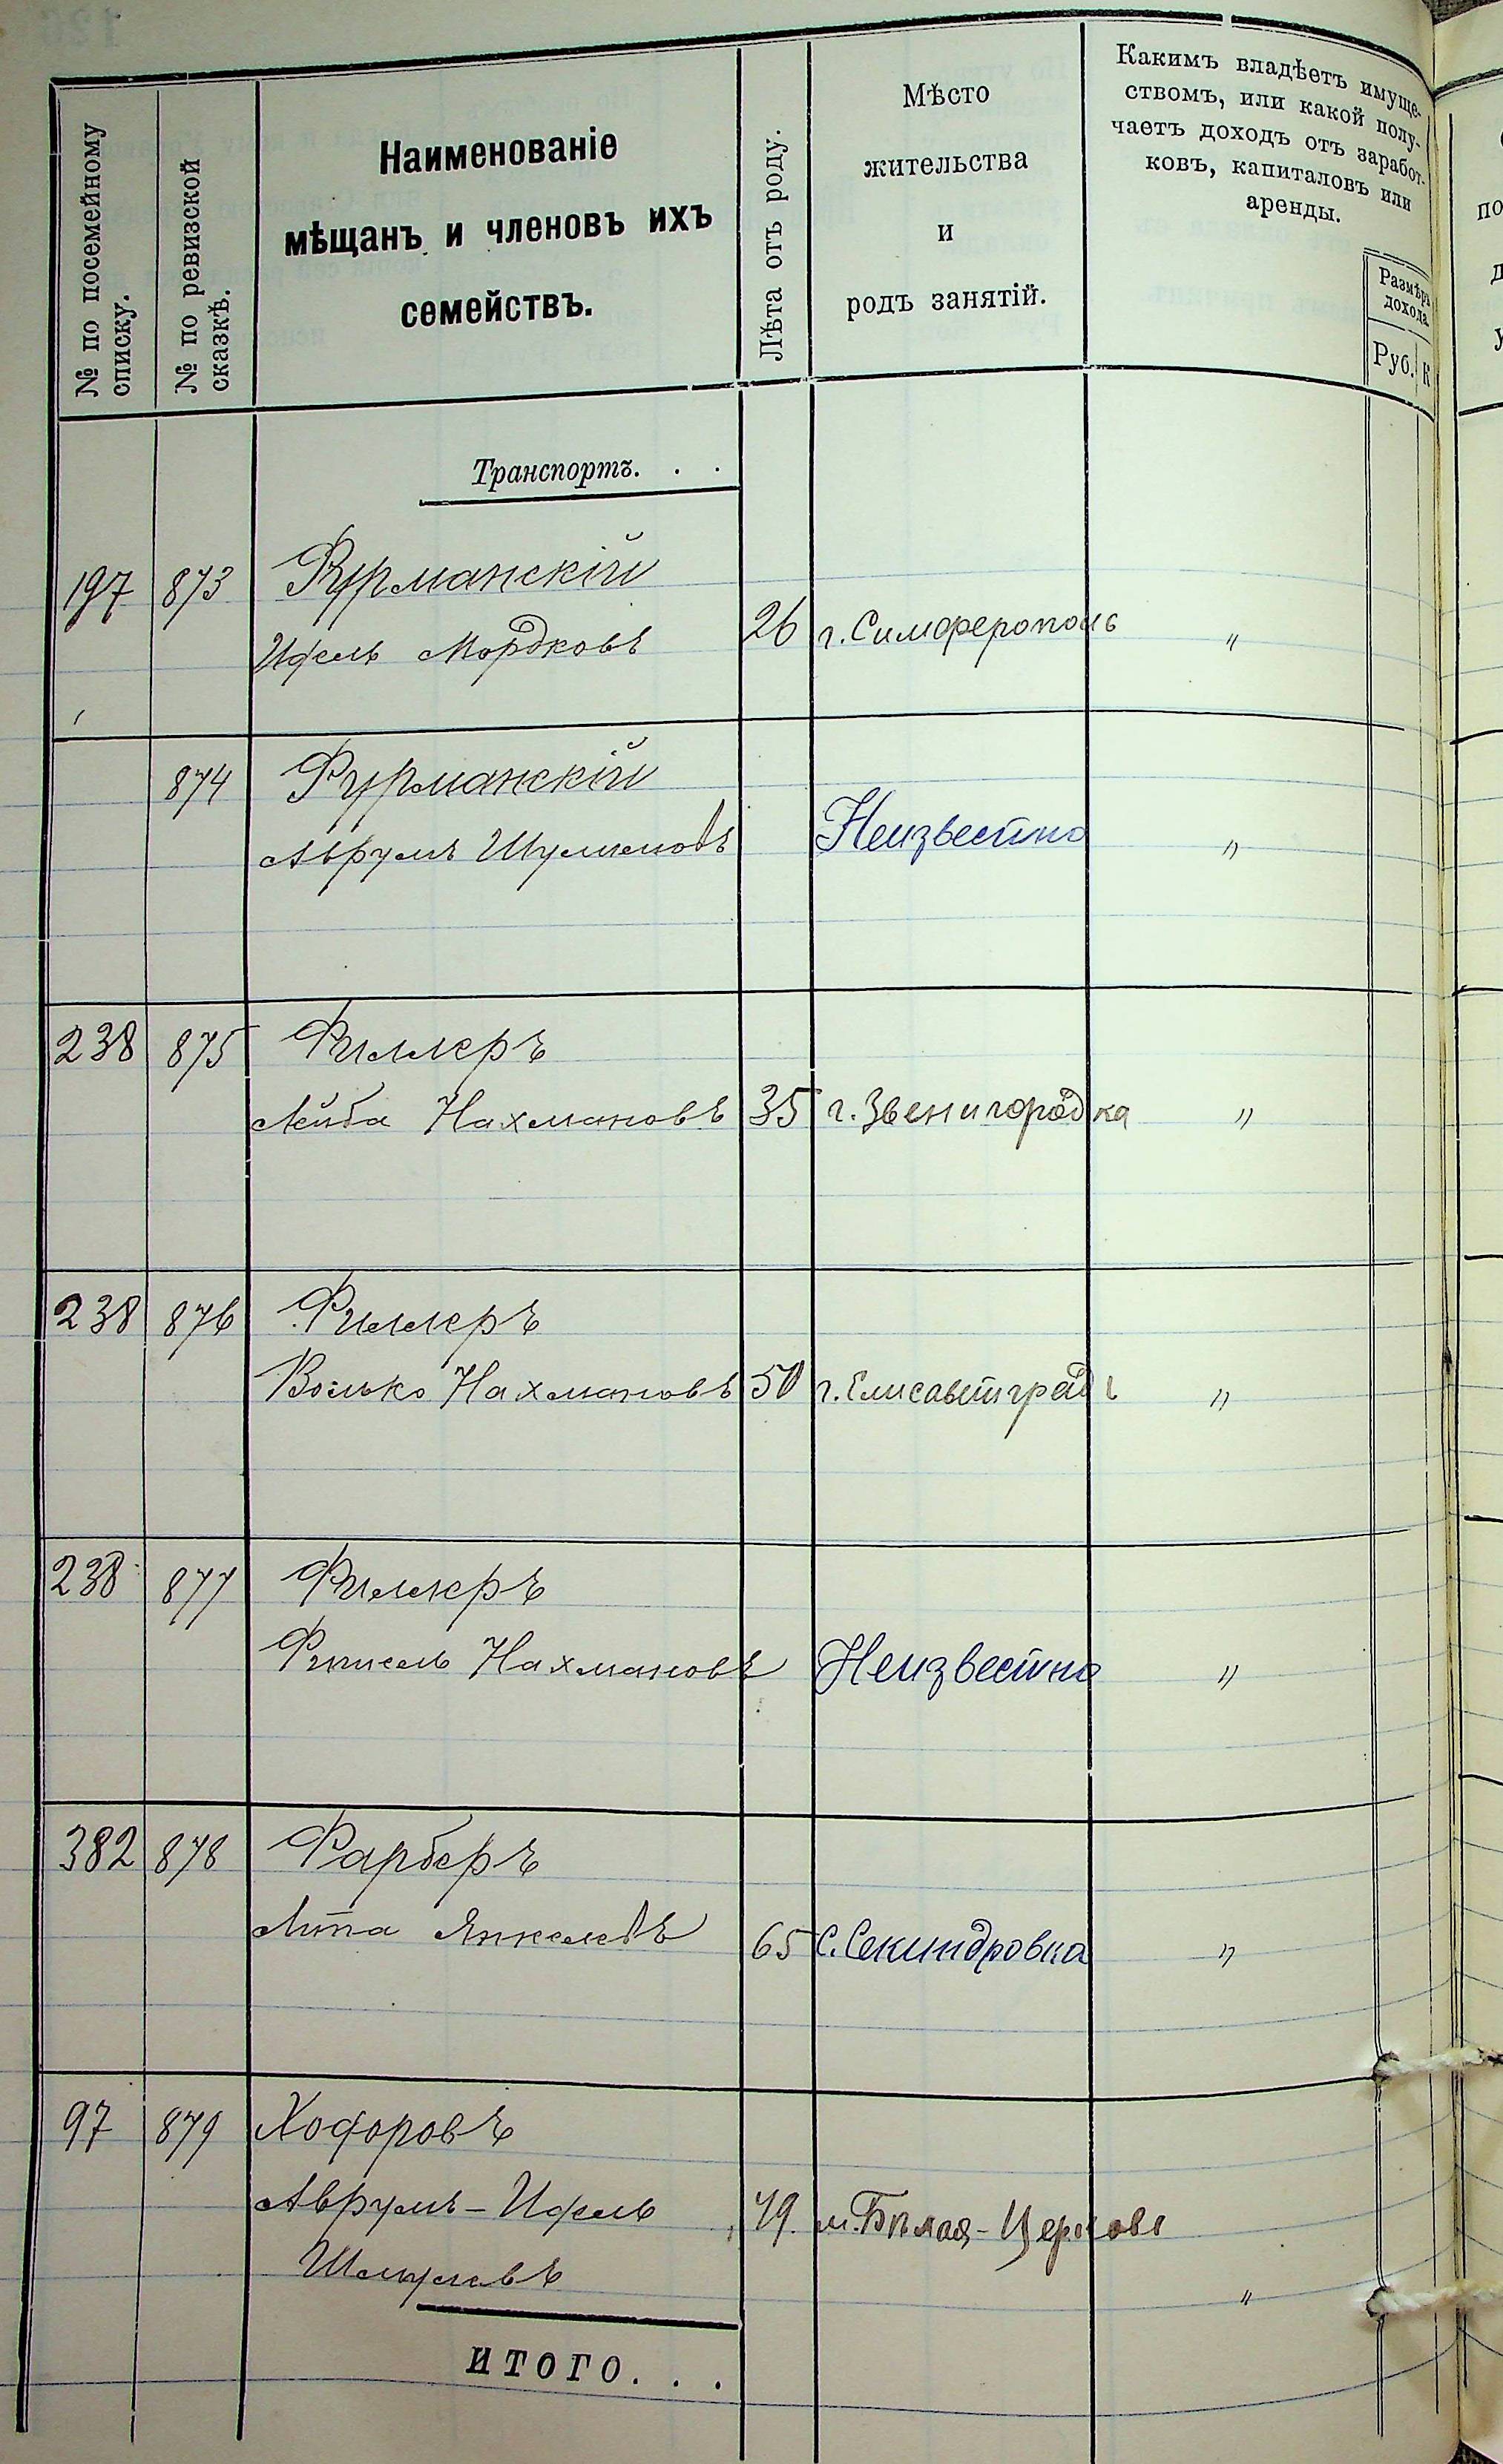 № по посемейному
списку.
№ по ревизской
сказкѣ.
Наименованіе
мѣщанъ и членовъ ихъ
семействъ.
Лѣта отъ роду.
Мѣсто
жительства
и
родъ занятій.
Какимъ владѣетъ имуще-
ствомъ, или какой полу-
чаетъ доходъ отъ заработ-
ковъ, капиталовъ или
аренды.
Размѣръ
дохода.
Руб. К
Транспортъ. . .
197 873 Фурманскій
Ицель Мордковъ 26 г. Симферополь "
874 Фурманскій
Аврумъ Шулимовъ Неизвестно "
238 875 Филлеръ
Лейба Нахмановъ 35 г. Звенигородка "
238 876 Филлеръ
Волько Нахмановъ 50 г. Елисаветградъ "
238 877 Филлеръ
Нахмановъ Неизвестно "
382 878 Фарберъ
Янкелевъ 65 С. Секиндровка "
97 879 Ходоровъ
Аврумъ - Ицель 49. м. Бѣлая - Церковь
Шмулевъ "
ИТОГО. . .